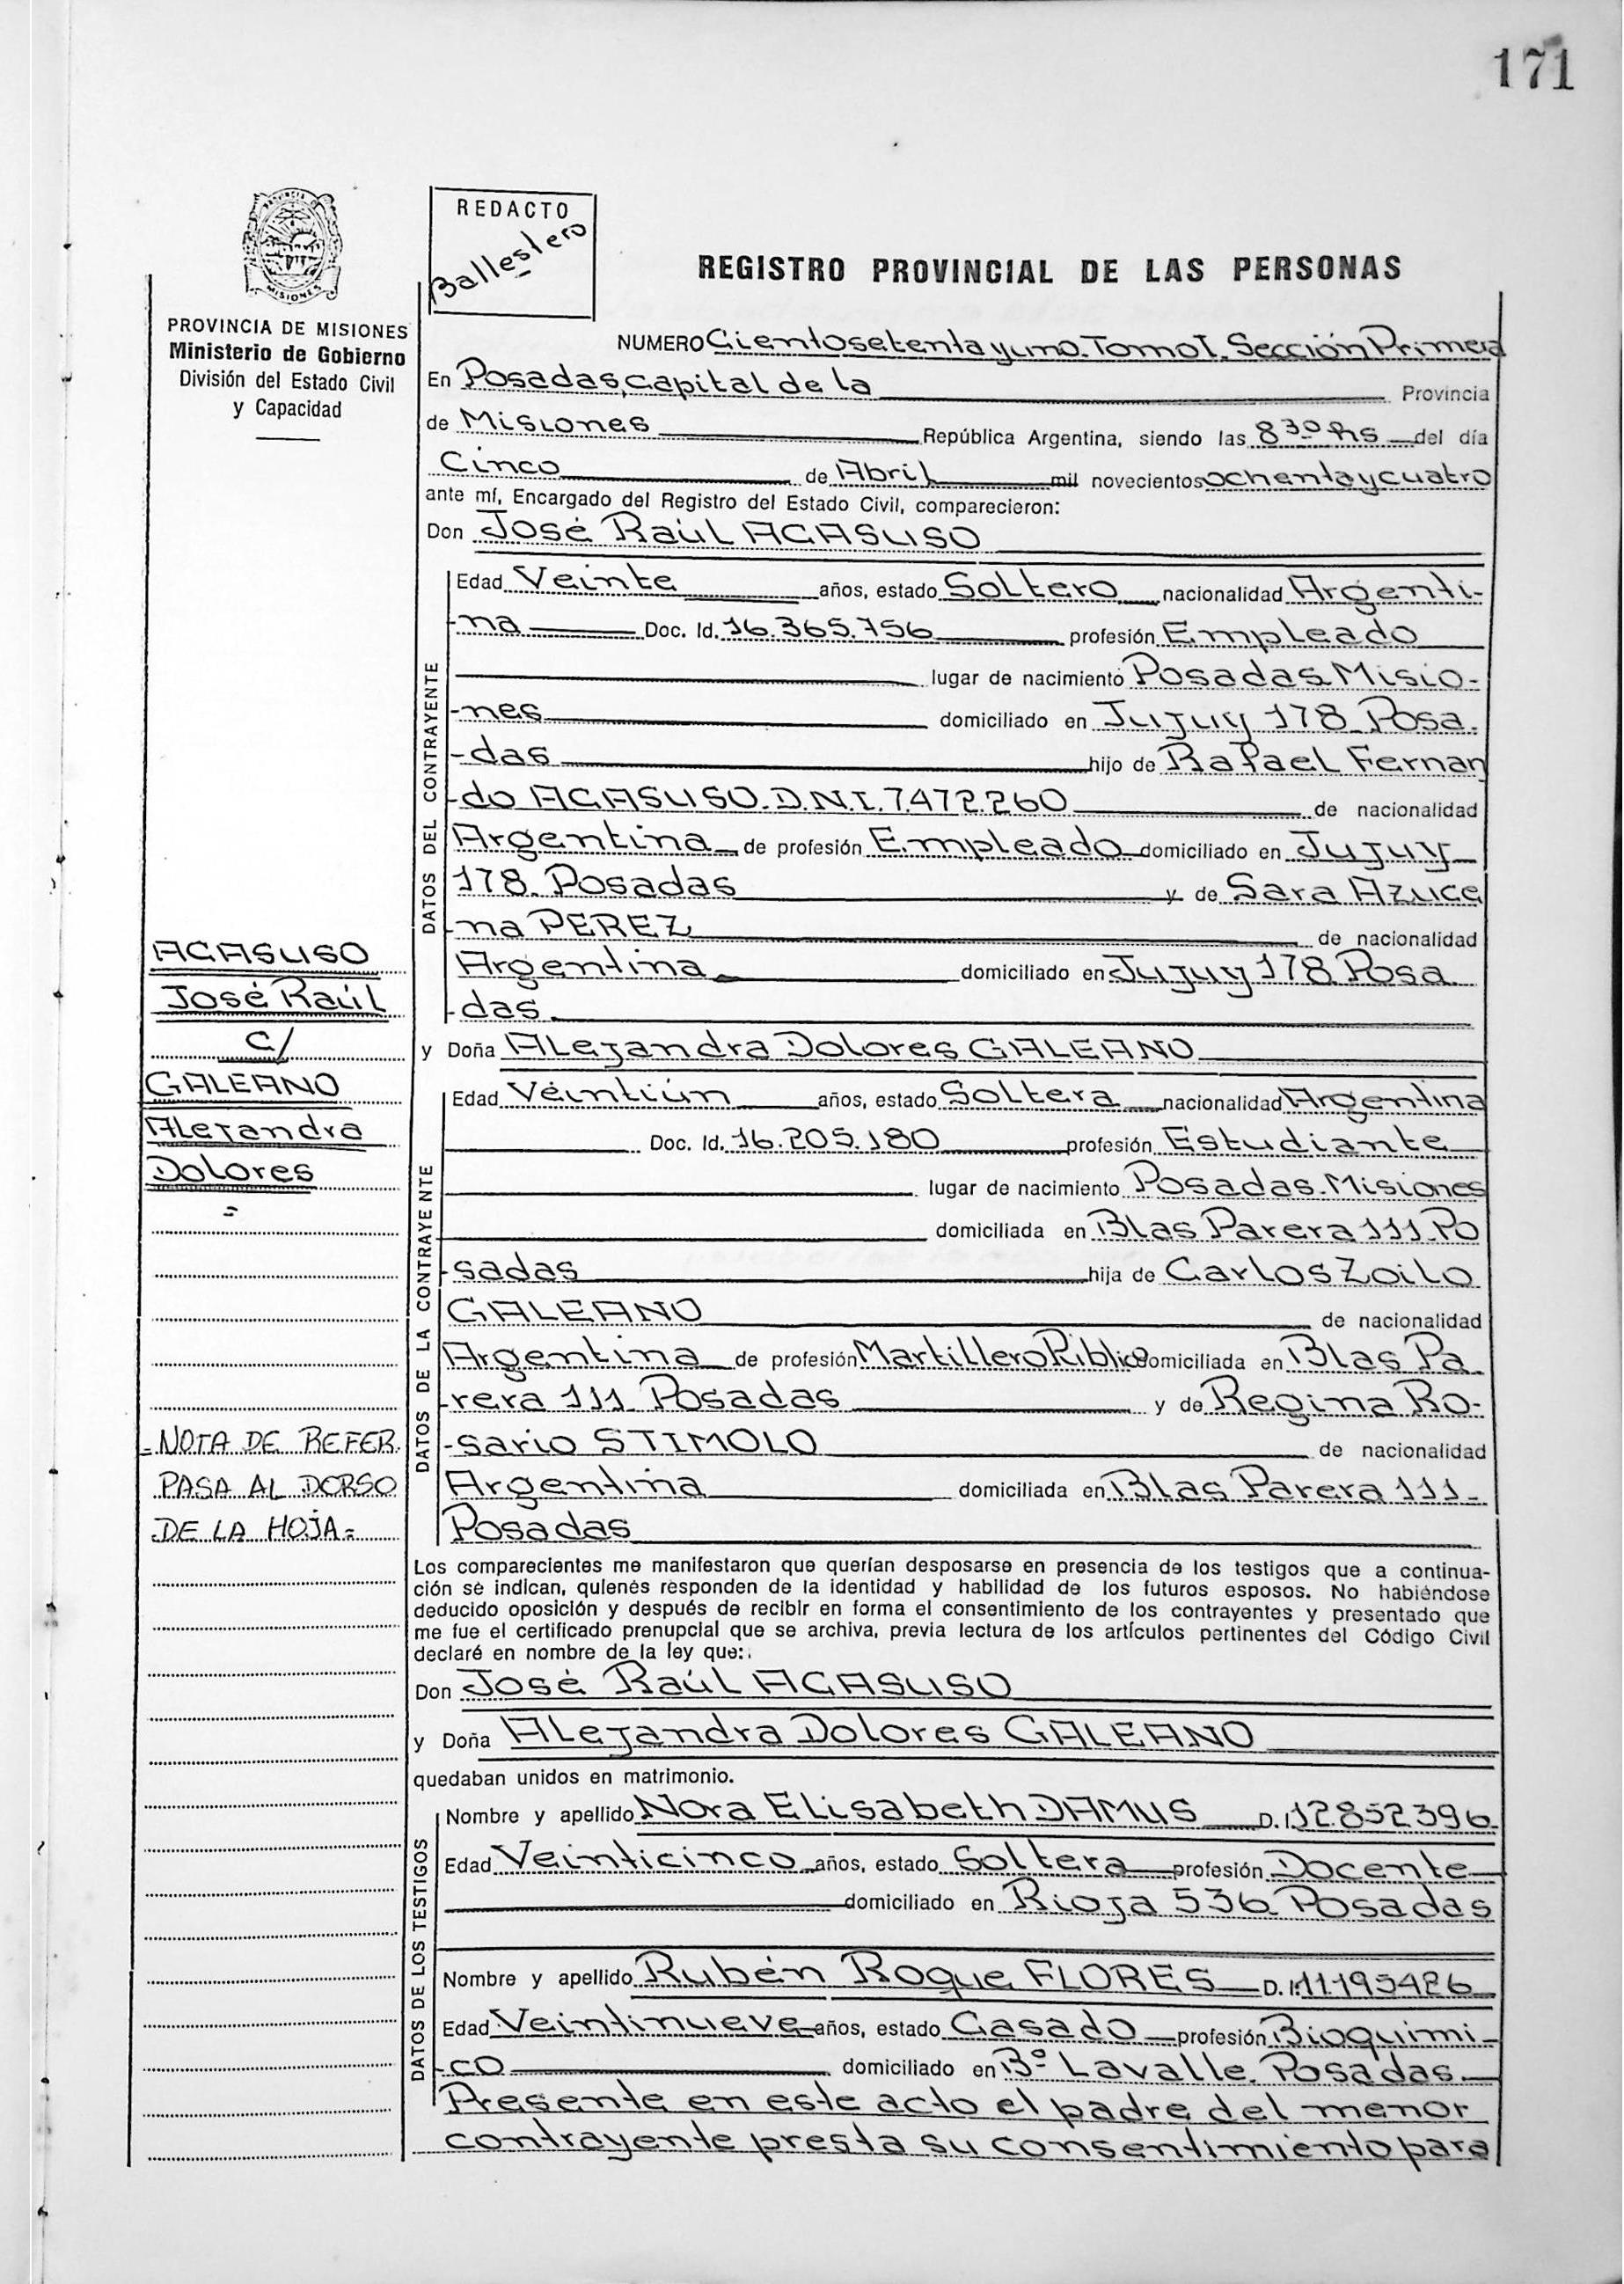 171
PROVINCIA DE
MISIONES
REDACTO
Ballestero
REGISTRO PROVINCIAL DE LAS PERSONAS
PROVINCIA DE MISIONES
Ministerio de Gobierno
División del Estado Civil
y Capacidad
NUMERO Ciento setenta y uno. Tomo I. Sección Primera
En Posadas, capital de la Provincia
de Misiones República Argentina, siendo las 8 30 hs del día
Cinco de Abril mil novecientos ochenta y cuatro
ante mí, Encargado del Registro del Estado Civil, comparecieron:
Don José Raúl AGASUSO
DATOS DEL CONTRAYENTE
Edad Veinte años, estado Soltero nacionalidad Argenti-
-na Doc. Id. 16.365.756 profesión Empleado
lugar de nacimiento Posadas Misio-
-nes domiciliado en Jujuy 178 Posa-
-das hijo de Rafael Fernan
-do AGASUSO. D.N.I. 7.472.260 de nacionalidad
Argentina de profesión Empleado domiciliado en Jujuy
178 Posadas y de Sara Azuce
-na PEREZ de nacionalidad
Argentina domiciliado en Jujuy 178 Posa
-das.
AGASUSO
José Raúl
c/
GALEANO
Alejandra
Dolores
=
y Doña Alejandra Dolores GALEANO
DATOS DE LA CONTRAYENTE
Edad Veintiún años, estado Soltera nacionalidad Argentina
Doc. Id. 16.205.180 profesión Estudiante
lugar de nacimiento Posadas. Misiones
domiciliada en Blas Parera 111. Po
-sadas hija de Carlos Zoilo
GALEANO de nacionalidad
Argentina de profesión Martillero Público domiciliada en Blas Pa
-rera 111 Posadas y de Regina Ro-
-sario STIMOLO de nacionalidad
Argentina domiciliada en Blas Parera 111-
Posadas
- NOTA DE REFER.
PASA AL DORSO
DE LA HOJA.=
Los comparecientes me manifestaron que querían desposarse en presencia de los testigos que a continua-
ción se indican, quienes responden de la identidad y habilidad de los futuros esposos. No habiéndose
deducido oposición y después de recibir en forma el consentimiento de los contrayentes y presentado que
me fue el certificado prenupcial que se archiva, previa lectura de los artículos pertinentes del Código Civil
declaré en nombre de la ley que:
Don José Raúl AGASUSO
y Doña Alejandra Dolores GALEANO
quedaban unidos en matrimonio.
DATOS DE LOS TESTIGOS
Nombre y apellido Nora Elisabeth DAMUS D. I. 12.852.396
Edad Veinticinco años, estado Soltera profesión Docente
domiciliado en Rioja 536 Posadas
Nombre y apellido Rubén Roque FLORES D. I. 11.195426
Edad Veintinueve años, estado Casado profesión Bioquimi-
-co domiciliado en Bº Lavalle. Posadas
Presente en este acto el padre del menor
contrayente presta su consentimiento para